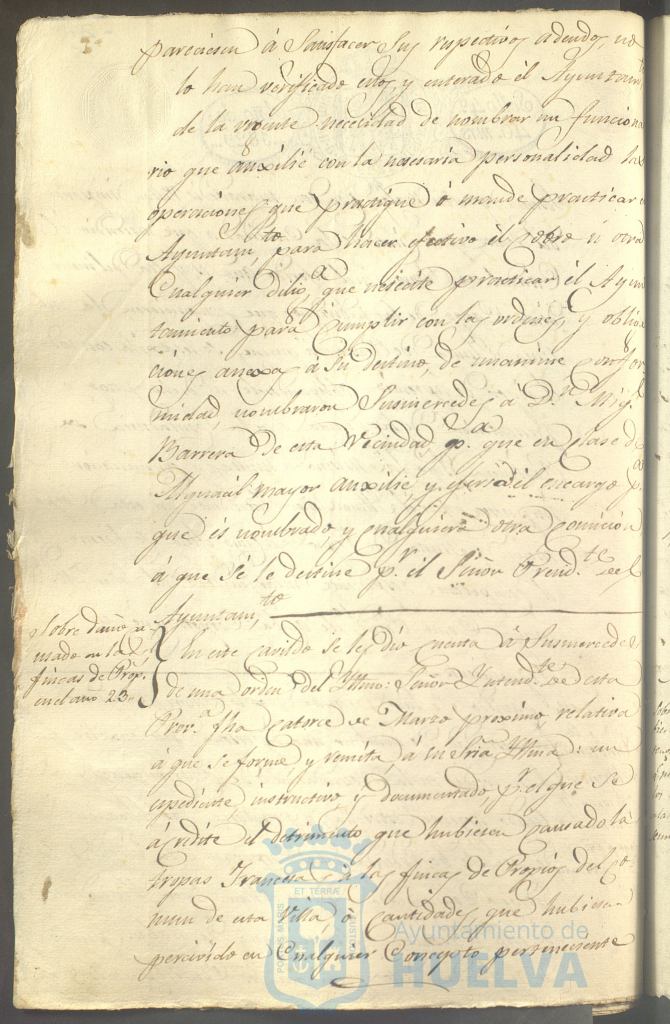 pareciesen á Satisfacer Sus respectivos adeudos, no
lo han verificado estos, y enterado el Ayuntam.to
de la urgente necesidad de nombrar un funciona
rio que auxilie con la necesaria personalidad las
operaciones que practique ó mande practicar el
Ayuntam.to, para hacer efectivo el cobro ú otra
Cualquier dilig.a que necesite practicar el Ayun
tamiento para Cumplir con las ordenes, y obliga
ciones anexas á su destino, de unanime confor
midad, nombraron Susmercedes á D.n Mig.l
Barrera de esta Vecindad p.a que en clase de
Alguacil mayor auxilie, y egerza el encargo p.a
que és nombrado, y cualquiera otra comicion
á que se le destine p.r el Señor Presid.te del
Ayuntam.to
Sobre daños ca
usados en las
fincas de Prop.s
en el año 23
En este cavildo se les dio cuenta á Susmercedes
de una orden del Yltmo. Señor Yntend.te de esta
Prov.a fha catorce de Marzo proximo relativa
á que se forme, y remita á su Sria. Yltma: un
espediente instructivo, y documentado, p.r el que se
acredite el detrimento que hubiesen causado las
tropas Francesas á las fincas de Propios del Co
mun de esta Villa, ó Cantidades que hubiesen
percivido en Cualquier Concepto perteneciente
PORTUS MARIS ET TERRÆ CUSTODIA
Ayuntamiento de
HUELVA